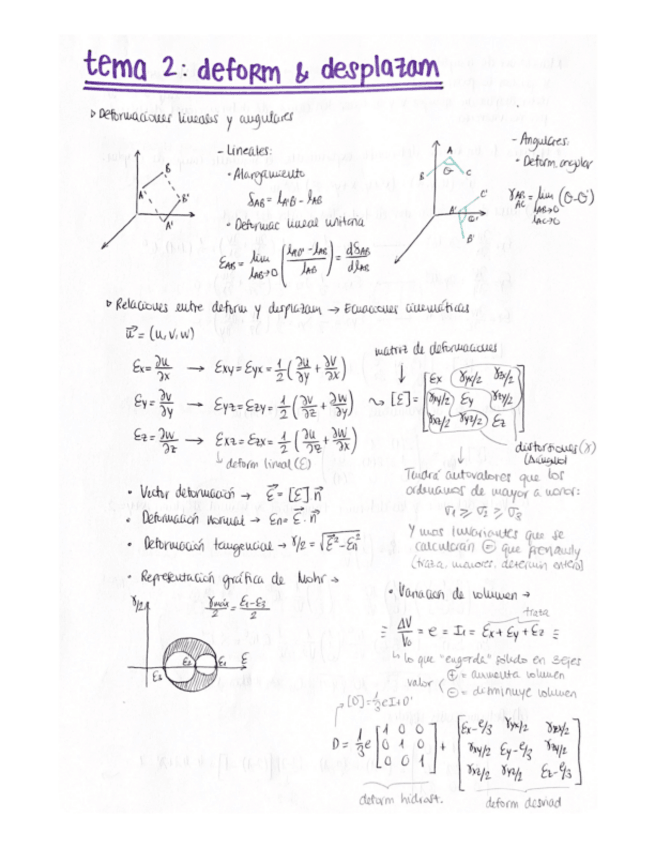 tema 2: deform & desplazam
▹ Deformaciones lineales y angulares
- Lineales:
• Alargamiento
δAB = lA'B' - lAB
• Deformac lineal unitaria
εAB = lim lAB→0 (lA'B' - lAB / lAB) = dδAB / dlAB
- Angulares:
• Deform. angular
γAB AC = lim lAB→0 lAC→0 (θ-θ')
▹ Relaciones entre deform y desplazam → Ecuaciones cinemáticas
u⃗ = (u, v, w)
εx = ∂u/∂x → εxy = εyx = 1/2 (∂u/∂y + ∂v/∂x)
εy = ∂v/∂y → εyz = εzy = 1/2 (∂v/∂z + ∂w/∂y)
εz = ∂w/∂z → εxz = εzx = 1/2 (∂u/∂z + ∂w/∂x)
↳ deform lineal (ε)
matriz de deformaciones
[ε] =
εx γyx/2 γzx/2
γxy/2 εy γzy/2
γxz/2 γyz/2 εz
distorsiones (γ)
Tendrá autovalores que los
ordenamos de mayor a menor:
σ1 ≥ σ2 ≥ σ3
Y unos invariantes que se
calcularán = que
(traza, menores, determin entero)
• Vector deformación → ε⃗ = [ε] n⃗
• Deformación normal → εn = ε⃗ · n⃗
• Deformación tangencial → γ/2 = √(ε² - εn²)
• Representación gráfica de Mohr →
γ/2
γmáx/2 = (ε1 - ε3)/2
ε3 ε2 ε1 ε
• Variación de volumen →
traza
ΔV/V0 = e = I1 = εx + εy + εz
↳ lo que "engorda" sólido en 3 ejes
valor
⊕ = aumenta volumen
⊖ = disminuye volumen
[D] = 1/3 e I + D'
D = 1/3 e
1 0 0
0 1 0
0 0 1
+
εx-e/3 γyx/2 γzx/2
γxy/2 εy-e/3 γzy/2
γxz/2 γyz/2 εz-e/3
deform hidrást.
deform desviad